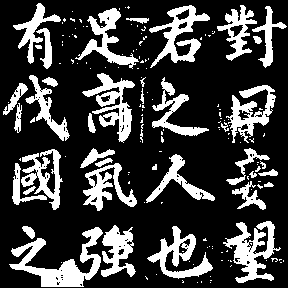 對曰妾望
君之人也
足高氣強
有伐國之